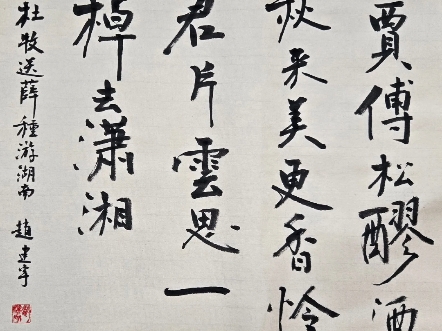 賈傅松醪酒
秋来美更香怜
君片雲思一
棹去瀟湘
杜牧送薛種游湖南
趙建宇